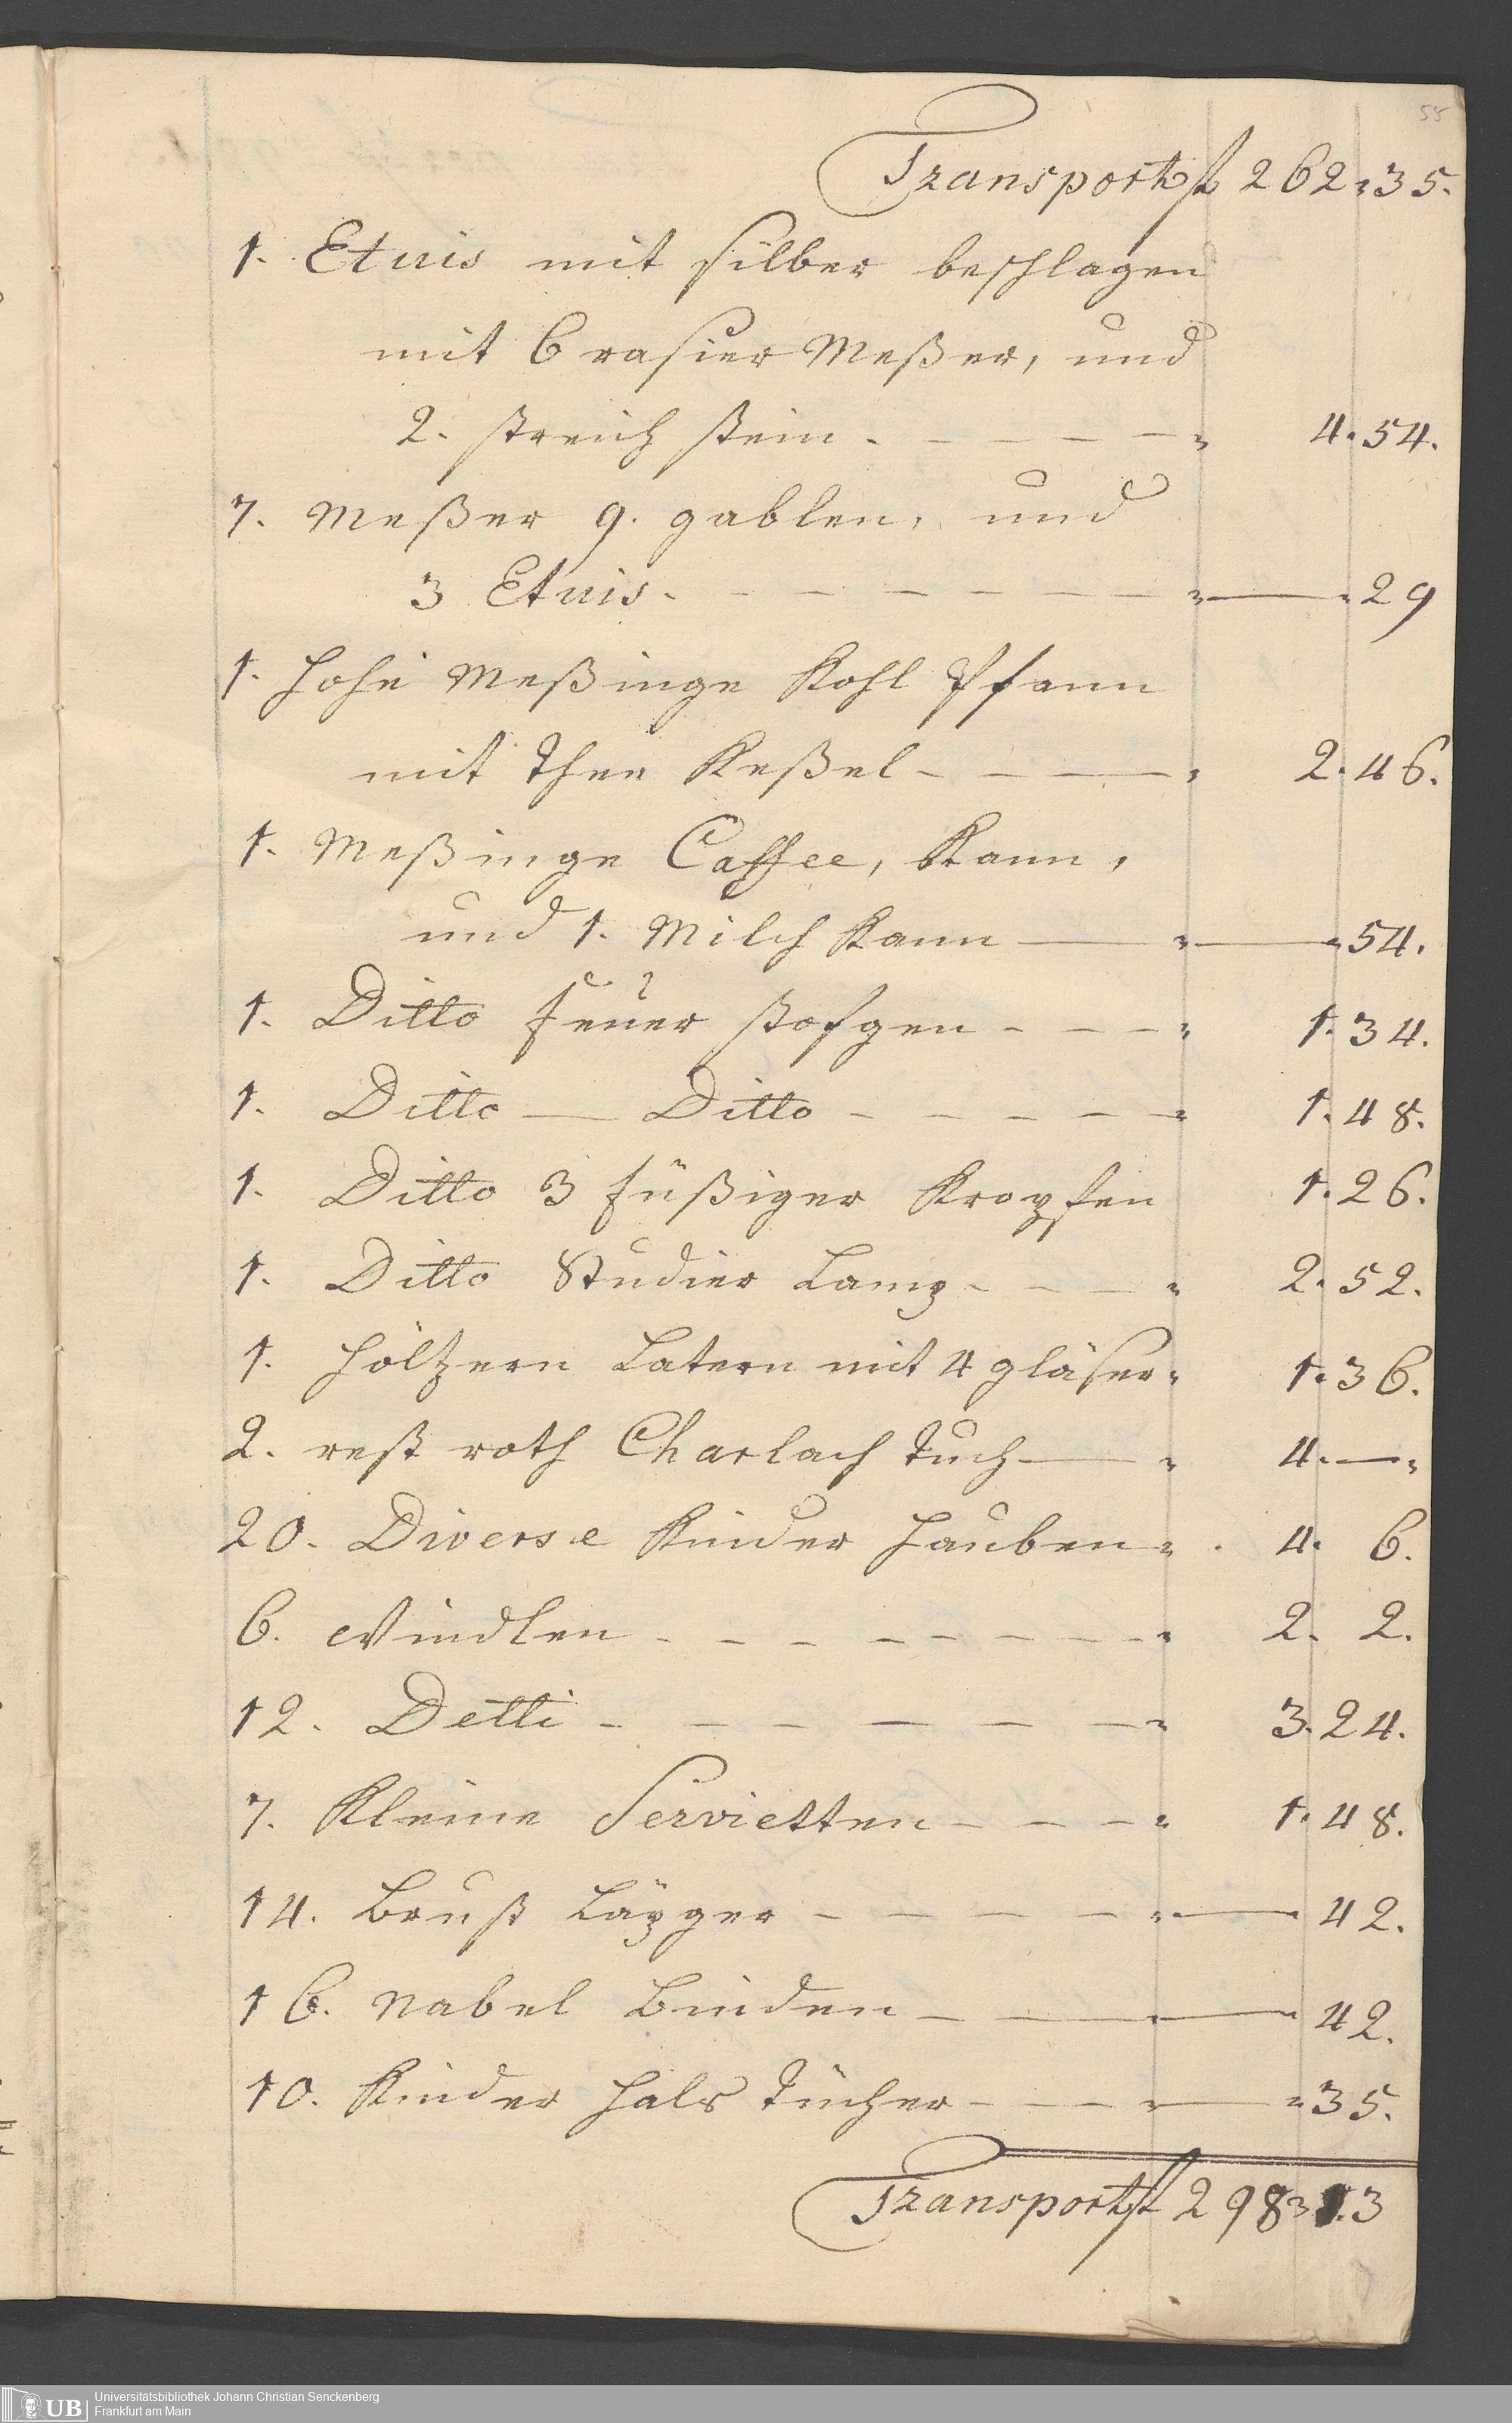 55
Transport fl 262 " 35.
1. Etuis mit silber beschlagen
mit 6 rasier Meßer, und
2. streich stein . - - - - " 4. 54.
7. Meßer 9. gablen, und
3 Etuis. - - - - - - " — " 29
1. hohe Meßinge Kohl Pfann
mit Thee Keßel - - — — " 2. 46.
1. Meßinge Caffee, Kann,
und 1. Milch Kann — " — " 54.
1. Ditto feuer stofgen - - - " 1. 34.
1. Ditto — Ditto - - - - - " 1. 48.
1. Ditto 3 füßiger Kropfen 1. 26.
1. Ditto Studier Lamp - - - " 2. 52.
1. höltzern Latern mit 4 gläser " 1. 36.
2. rest roth Charlach tuch — " 4. — "
20. Diverse Kinder hauben " . 4. 6.
6. Windlen - - - - - - - " 2. 2.
12. Detti - - - - - - " 3. 24.
7. Kleine Servietten - - - " 1. 48.
14. Brust Läpger - - - - - " — 42.
16. Nabel Binden - — — " 42.
10. Kinder hals tücher - - - " — " 35.
Transport fl 298 " 13
UB
Universitätsbibliothek Johann Christian Senckenberg
Frankfurt am Main